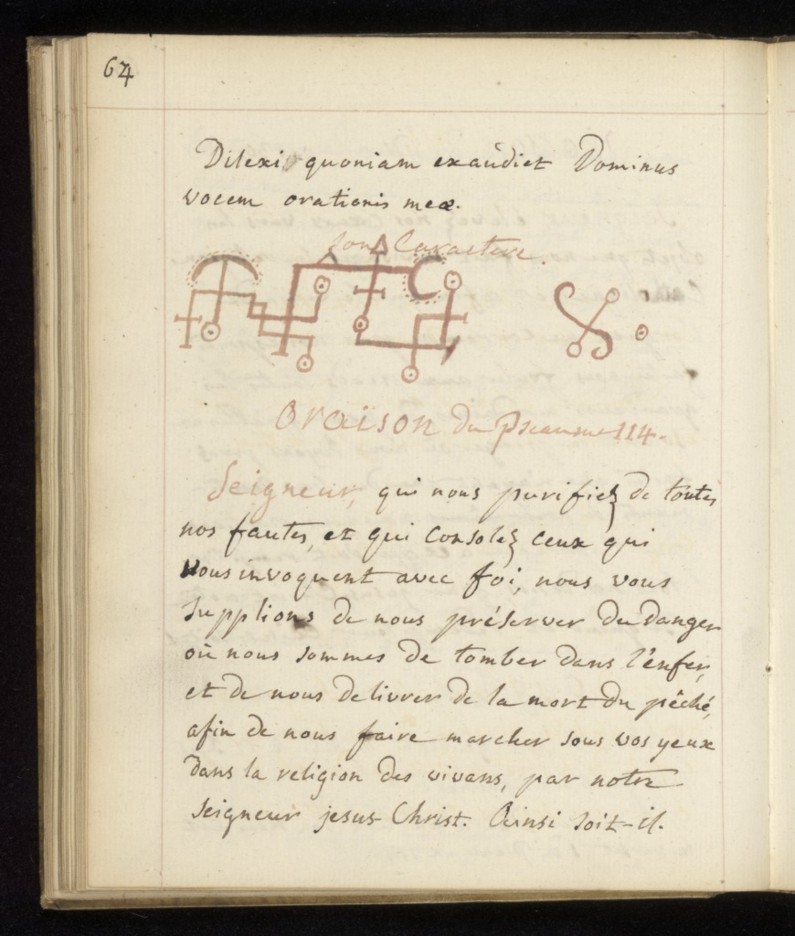 64
Dilexi quoniam exaúdiet Dominus
vocem orationis meæ.
Son Caractere.
Oraison du Pseaume 114.
Seigneur, qui nous purifiez de toutes
nos fautes, et qui consolez ceux qui
vous invoquent avec foi, nous vous
supplions de nous préserver du danger
où nous sommes de tomber dans l'enfer,
et de nous delivrer de la mort du pêché,
afin de nous faire marcher sous vos yeux
dans la religion des vivans, par notre
Seigneur jesus Christ. Ainsi soit-il.